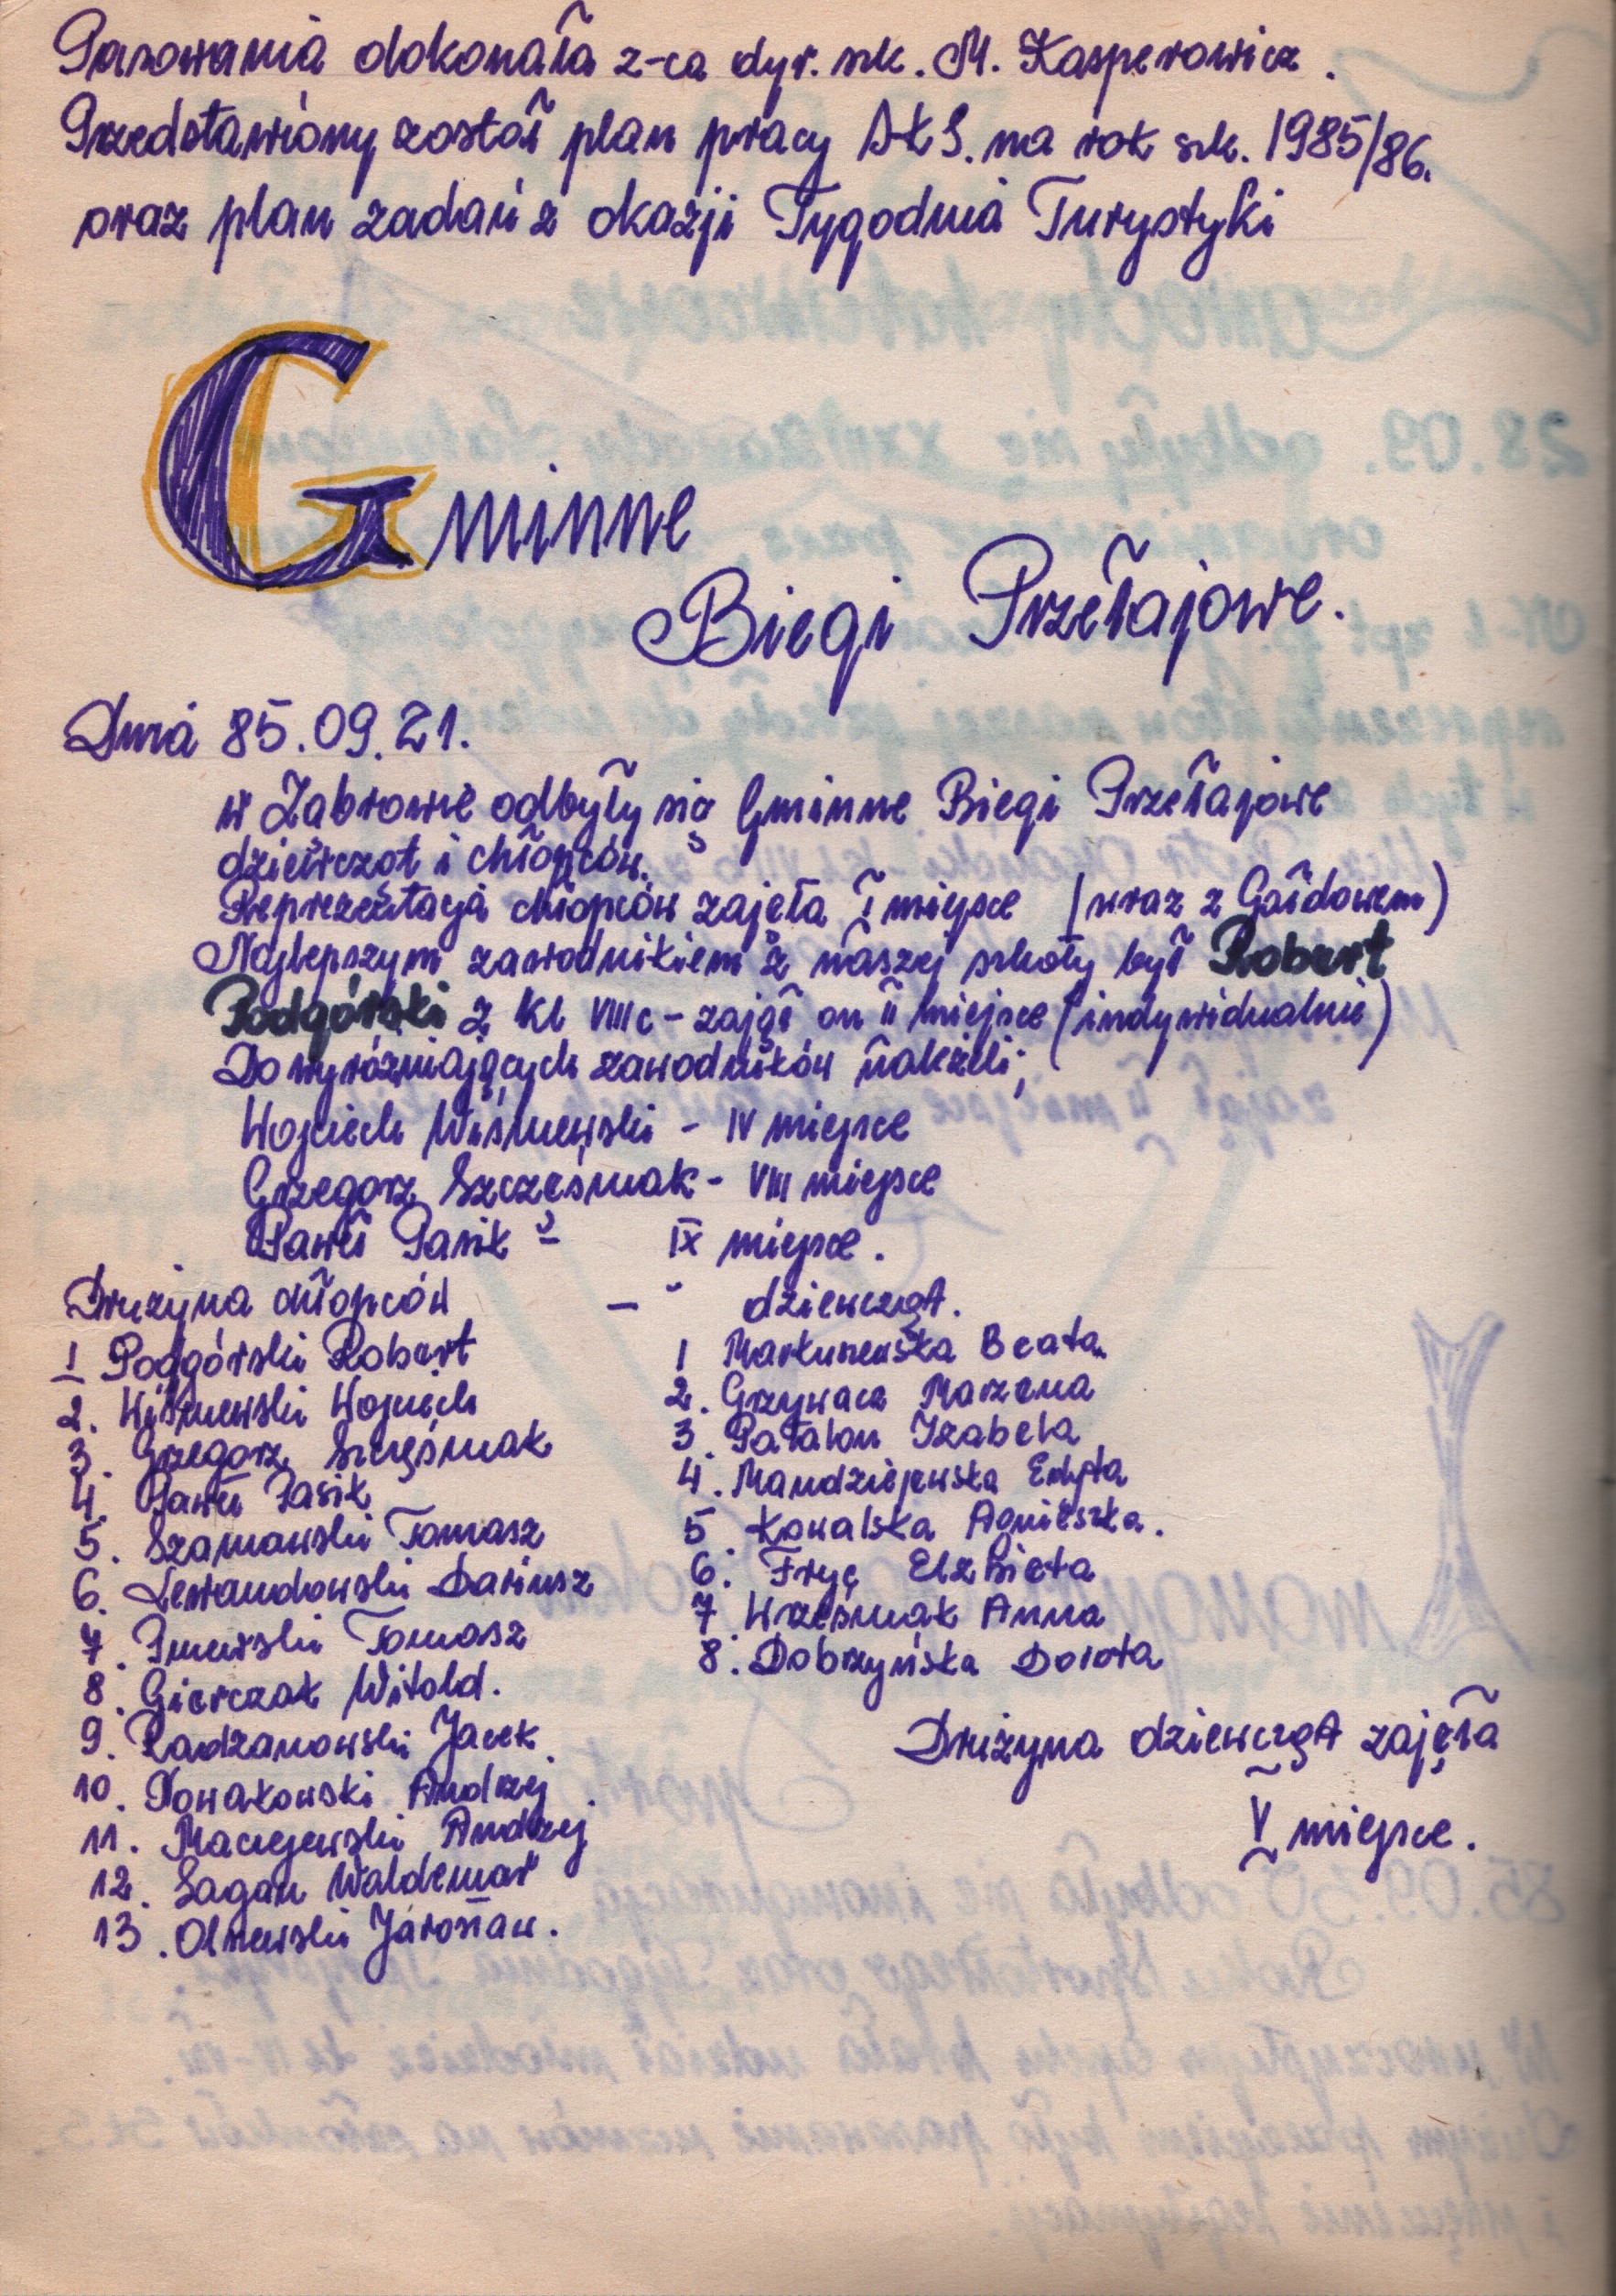 Pasowania dokonała z-ca dyr. szk. M. Kasperowicz.
Przedstawiony został plan pracy SKS. na rok szk. 1985/86.
oraz plan zadań z okazji Tygodnia Turystyki
Gminne
Biegi Przełajowe.
Dnia 85.09.21.
w Żabrowie odbyły się Gminne Biegi Przełajowe
dziewcząt i chłopców.
Reprezentacja chłopców zajęła I miejsce (wraz z Gałdowem)
Najlepszym zawodnikiem z naszej szkoły był Robert
Podgórski z kl VIIIc - zajął on II miejsce (indywidualnie)
Do wyróżniających zawodników należeli;
Wojciech Wiśniewski - IV miejsce
Grzegorz Szcześniak - VIII miejsce
Paweł Pasik - IX miejsce.
Drużyna chłopców - " dziewcząt.
1 Podgórski Robert
2. Wiśniewski Wojciech
3. Grzegorz Szcześniak
4. Paweł Pasik
5. Szamawski Tomasz
6. Lewandowski Dariusz
7. Tomasz
8. Gierczak Witold.
9. Radzanowski Jacek
10. Nowakowski Andrzej
11. Maciejewski Andrzej
12. Sagan Waldemar
13. Olszewski Jarosław.
1 Markuszewska Beata
2. Grzywacz Marzena
3. Patalon Izabela
4. Mandziejewska Edyta
5 Kowalska Agnieszka.
6. Fryc Elżbieta
7. Wrześniak Anna
8. Dobrzyńska Dorota
Drużyna dziewcząt zajęła
V miejsce.